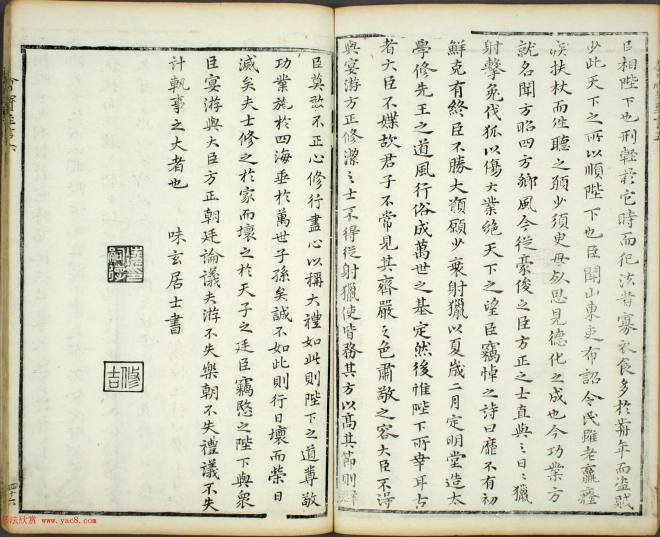 臣相陛下也刑輕於它時而犯法者寡衣食多於前年而盜賊
少此天下之所以順陛下也臣聞山東吏布詔令民雖老羸癃
疾扶杖而往聽之願少須臾毋死思見德化之成也今功業方
就名聞方昭四方鄉風今從豪俊之臣方正之士直與之日日獵
射擊兔伐狐以傷大業絶天下之望臣竊悼之詩曰靡不有初
鮮克有終臣不勝大願願少衰射獵以夏歲二月定明堂造太
學修先王之道風行俗成萬世之基定然後惟陛下所幸耳古
者大臣不媟故君子不常見其齊嚴之色肅敬之容大臣不得
與宴游方正修潔之士不得從射獵使皆務其方以高其節則群
臣莫敢不正心修行盡心以稱大禮如此則陛下之道尊敬
功業施於四海垂於萬世子孫矣誠不如此則行日壞而榮日
滅矣夫士修之於家而壞之於天子之廷臣竊愍之陛下與衆
臣宴游與大臣方正朝廷論議夫游不失樂朝不失禮議不失
計軌事之大者也
味玄居士書
修
吉
四十六
書法欣賞 www.yac8.com